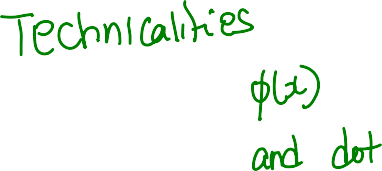 Technicalities
φ(x)
and dot